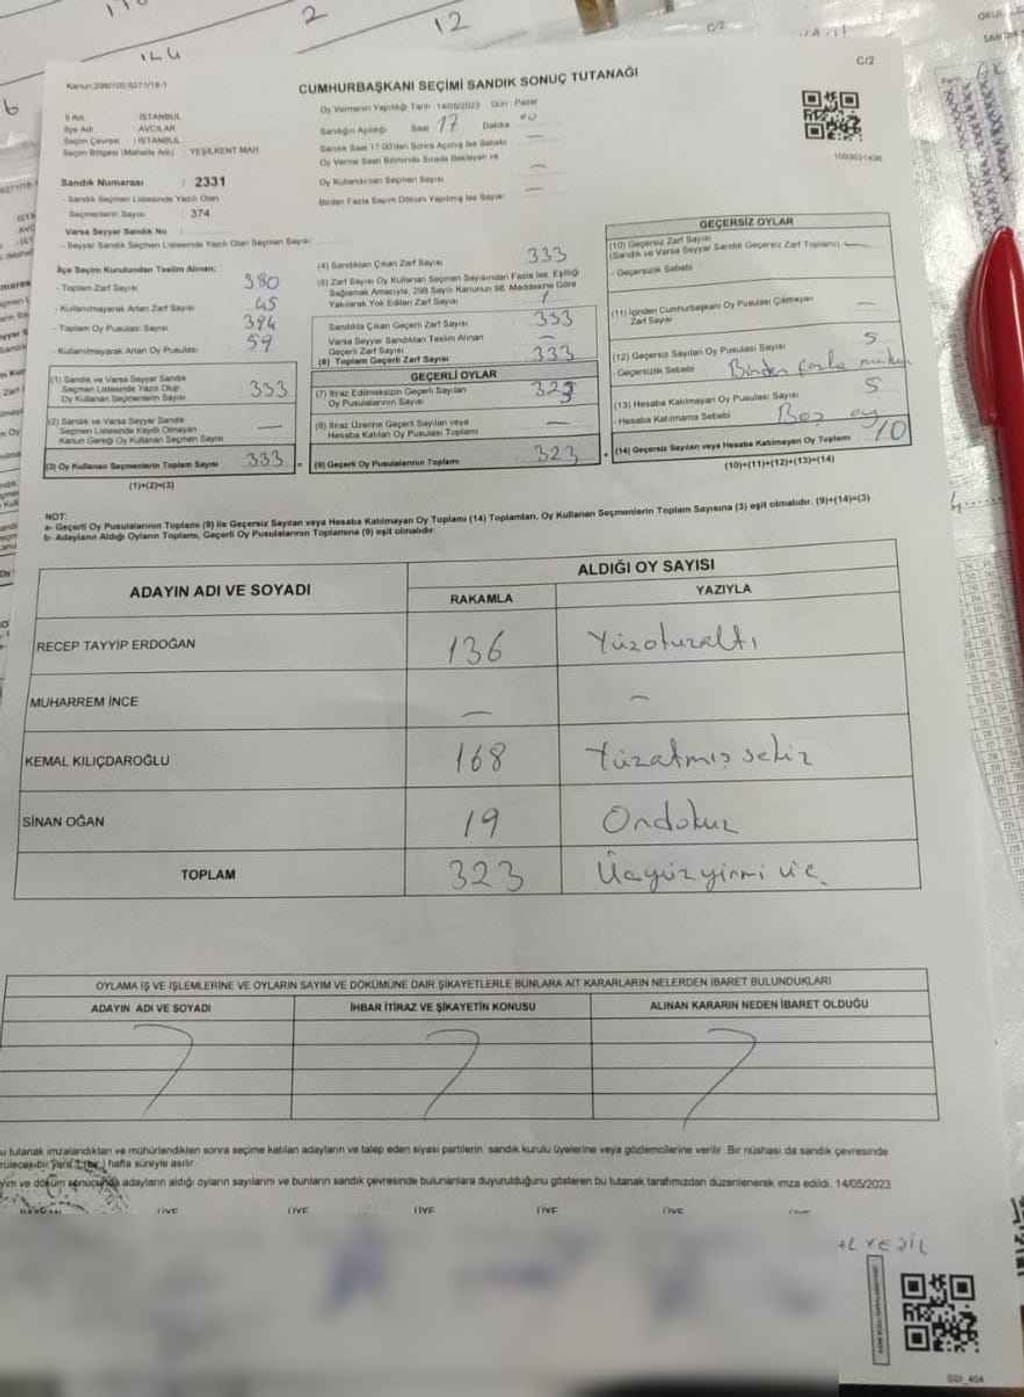 2
12
144
6
C/2
C/2
CUMHURBAŞKANI SEÇİMİ SANDIK SONUÇ TUTANAĞI
İl Adı : İSTANBUL
İlçe Adı : AVCILAR
Seçim Çevresi : İSTANBUL
Seçim Bölgesi (Mahalle Adı) : YEŞİLKENT MAH.
Oy Vermenin Yapıldığı Tarih 14/05/2023 Gün : Pazar
Sandığın Açıldığı Saat 17 Dakika
Sandık Saat 17.00'den Sonra Açılmış İse Sebebi
Oy Verme Saati Bitiminde Sırada Bekleyen ve
Oy Kullandırılan Seçmen Sayısı
Birden Fazla Sayım Döküm Yapılmış İse Sayısı
Sandık Numarası : 2331
- Sandık Seçmen Listesinde Yazılı Olan
Seçmenlerin Sayısı : 374
Varsa Seyyar Sandık No :
- Seyyar Sandık Seçmen Listesinde Yazılı Olan Seçmen Sayısı
İlçe Seçim Kurulundan Teslim Alınan;
- Toplam Zarf Sayısı 380
- Kullanılmayarak Artan Zarf Sayısı 45
- Toplam Oy Pusulası Sayısı 394
- Kullanılmayarak Artan Oy Pusulası 59
(1) Sandık ve Varsa Seyyar Sandık
Seçmen Listesinde Yazılı Olup
Oy Kullanan Seçmenlerin Sayısı 333
(2) Sandık ve Varsa Seyyar Sandık
Seçmen Listesinde Kayıtlı Olmayan
Kanun Gereği Oy Kullanan Seçmen Sayısı —
(3) Oy Kullanan Seçmenlerin Toplam Sayısı 333
(1)+(2)=(3)
(4) Sandıktan Çıkan Zarf Sayısı 333
(5) Zarf Sayısı Oy Kullanan Seçmen Sayısından Fazla İse, Eşitliği
Sağlamak Amacıyla, 298 Sayılı Kanunun 98. Maddesine Göre
Yakılarak Yok Edilen Zarf Sayısı
Sandıkta Çıkan Geçerli Zarf Sayısı 333
Varsa Seyyar Sandıktan Teslim Alınan
Geçerli Zarf Sayısı —
(6) Toplam Geçerli Zarf Sayısı 333
GEÇERLİ OYLAR
(7) İtiraz Edilmeksizin Geçerli Sayılan
Oy Pusulalarının Sayısı 323
(8) İtiraz Üzerine Geçerli Sayılan veya
Hesaba Katılan Oy Pusulası Toplamı —
(9) Geçerli Oy Pusulalarının Toplamı 323
GEÇERSİZ OYLAR
(10) Geçersiz Zarf Sayısı
(Sandık ve Varsa Seyyar Sandık Geçersiz Zarf Toplamı) —
- Geçersizlik Sebebi
(11) İçinden Cumhurbaşkanı Oy Pusulası Çıkmayan
Zarf Sayısı —
(12) Geçersiz Sayılan Oy Pusulası Sayısı 5
- Geçersizlik Sebebi Birden fazla mühür
(13) Hesaba Katılmayan Oy Pusulası Sayısı 5
- Hesaba Katılmama Sebebi Boş oy
(14) Geçersiz Sayılan veya Hesaba Katılmayan Oy Toplamı 10
(10)+(11)+(12)+(13)=(14)
NOT:
a- Geçerli Oy Pusulalarının Toplamı (9) ile Geçersiz Sayılan veya Hesaba Katılmayan Oy Toplamı (14) Toplamları, Oy Kullanan Seçmenlerin Toplam Sayısına (3) eşit olmalıdır. (9)+(14)=(3)
b- Adayların Aldığı Oyların Toplamı, Geçerli Oy Pusulalarının Toplamına (9) eşit olmalıdır.
ADAYIN ADI VE SOYADI
ALDIĞI OY SAYISI
RAKAMLA YAZIYLA
RECEP TAYYİP ERDOĞAN 136 Yüzotuzaltı
MUHARREM İNCE — —
KEMAL KILIÇDAROĞLU 168 Yüzatmış sekiz
SİNAN OĞAN 19 Ondokuz
TOPLAM 323 Üçyüzyirmi üç
OYLAMA İŞ VE İŞLEMLERİNE VE OYLARIN SAYIM VE DÖKÜMÜNE DAİR ŞİKAYETLERLE BUNLARA AİT KARARLARIN NELERDEN İBARET BULUNDUKLARI
ADAYIN ADI VE SOYADI İHBAR İTİRAZ VE ŞİKAYETİN KONUSU ALINAN KARARIN NEDEN İBARET OLDUĞU
tutanak imzalandıktan ve mühürlendikten sonra seçime katılan adayların ve talep eden siyasi partilerin sandık kurulu üyelerine veya gözlemcilerine verilir. Bir nüshası da sandık çevresinde
hafta süreyle asılır.
ve döküm sonucunda adayların aldığı oyların sayılarını ve bunların sandık çevresinde bulunanlara duyurulduğunu gösteren bu tutanak tarafımızdan düzenlenerek imza edildi. 14/05/2023
ÜYE ÜYE ÜYE ÜYE ÜYE